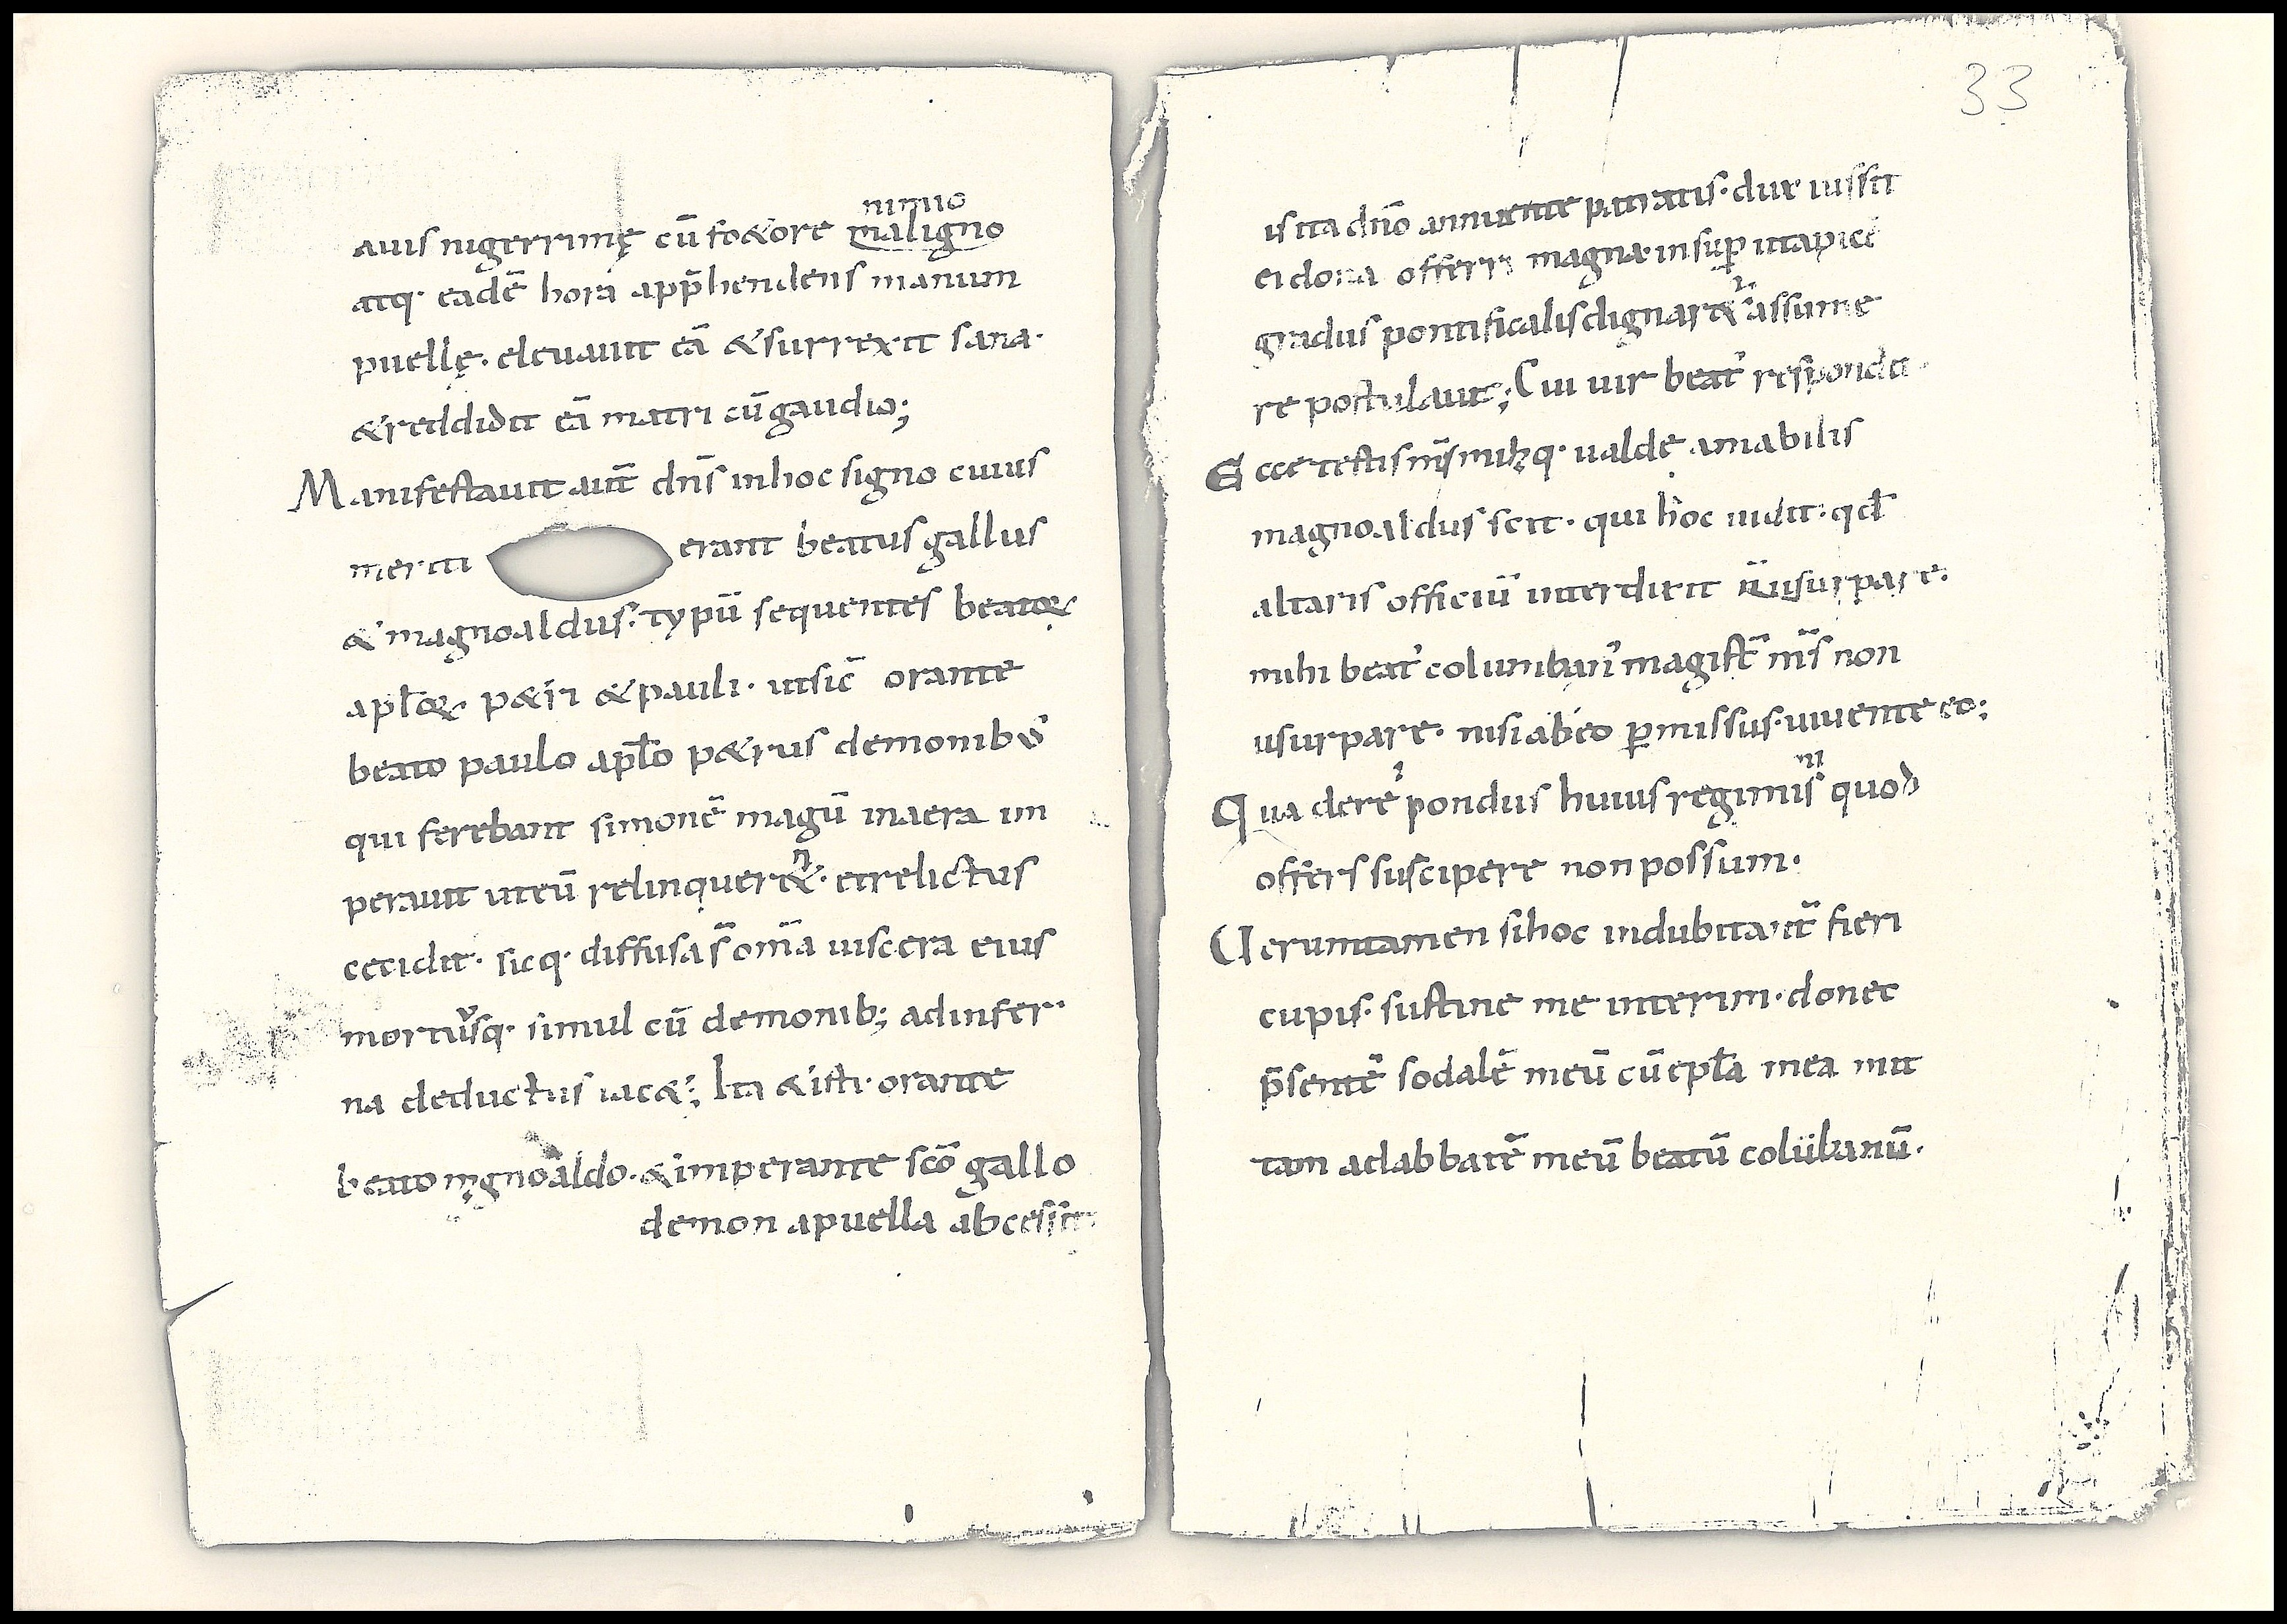 nimio
auis nigerrimę cū fo&ore maligno
atq· eadē hora app̄hendens manum
puellę· eleuauit eā & surrexit sana·
& reddidit eā matri cū gaudio;
Manifestauit aut̄ dn̄s in hoc signo cuius
meriti erant beatus gallus
& magnoaldus· typū sequentes beatoꝝ
apl̄oꝝ p&ri & pauli· ut sic̄ orante
beato paulo apl̄o p&rus demonibꝰ
qui ferebant simonē magū in aera im
perauit ut eū relinquer&· et relictus
cecidit· sicq· diffusa s̄ om̄a uiscera eius
mortuꝰsq· simul cū demonib; ad infer·
na deductus iac&; Ita & isti· orante
beato mgnoaldo· & imperante sc̄o gallo
demon a puella abcessit
33
is ita dn̄o annuente patratis· dux iussit
ei dona offerri magna· insuꝑ ut apicē
gradus pontificalis dignar& assume
re postulauit; Cui uir beatꝰ respondit·
Ecce testis m̄s mihiq· ualde amabilis
magnoaldus scit· qui hoc uidit· qd̄
altaris officiū interdixit usurpare·
mihi beatꝰ columbanꝰ magist̄ m̄s non
usurpare· nisi ab eo ꝑmissus· uiuente eo;
Qua de re pondus huius regiminis quod
offers suscipere non possum·
Ueruntamen si hoc indubitant̄ fieri
cupis· sustine me interim· donec
p̄sentē sodalē meū cū epl̄a mea mit
tam ad abbatē meū beatū colūbanū·